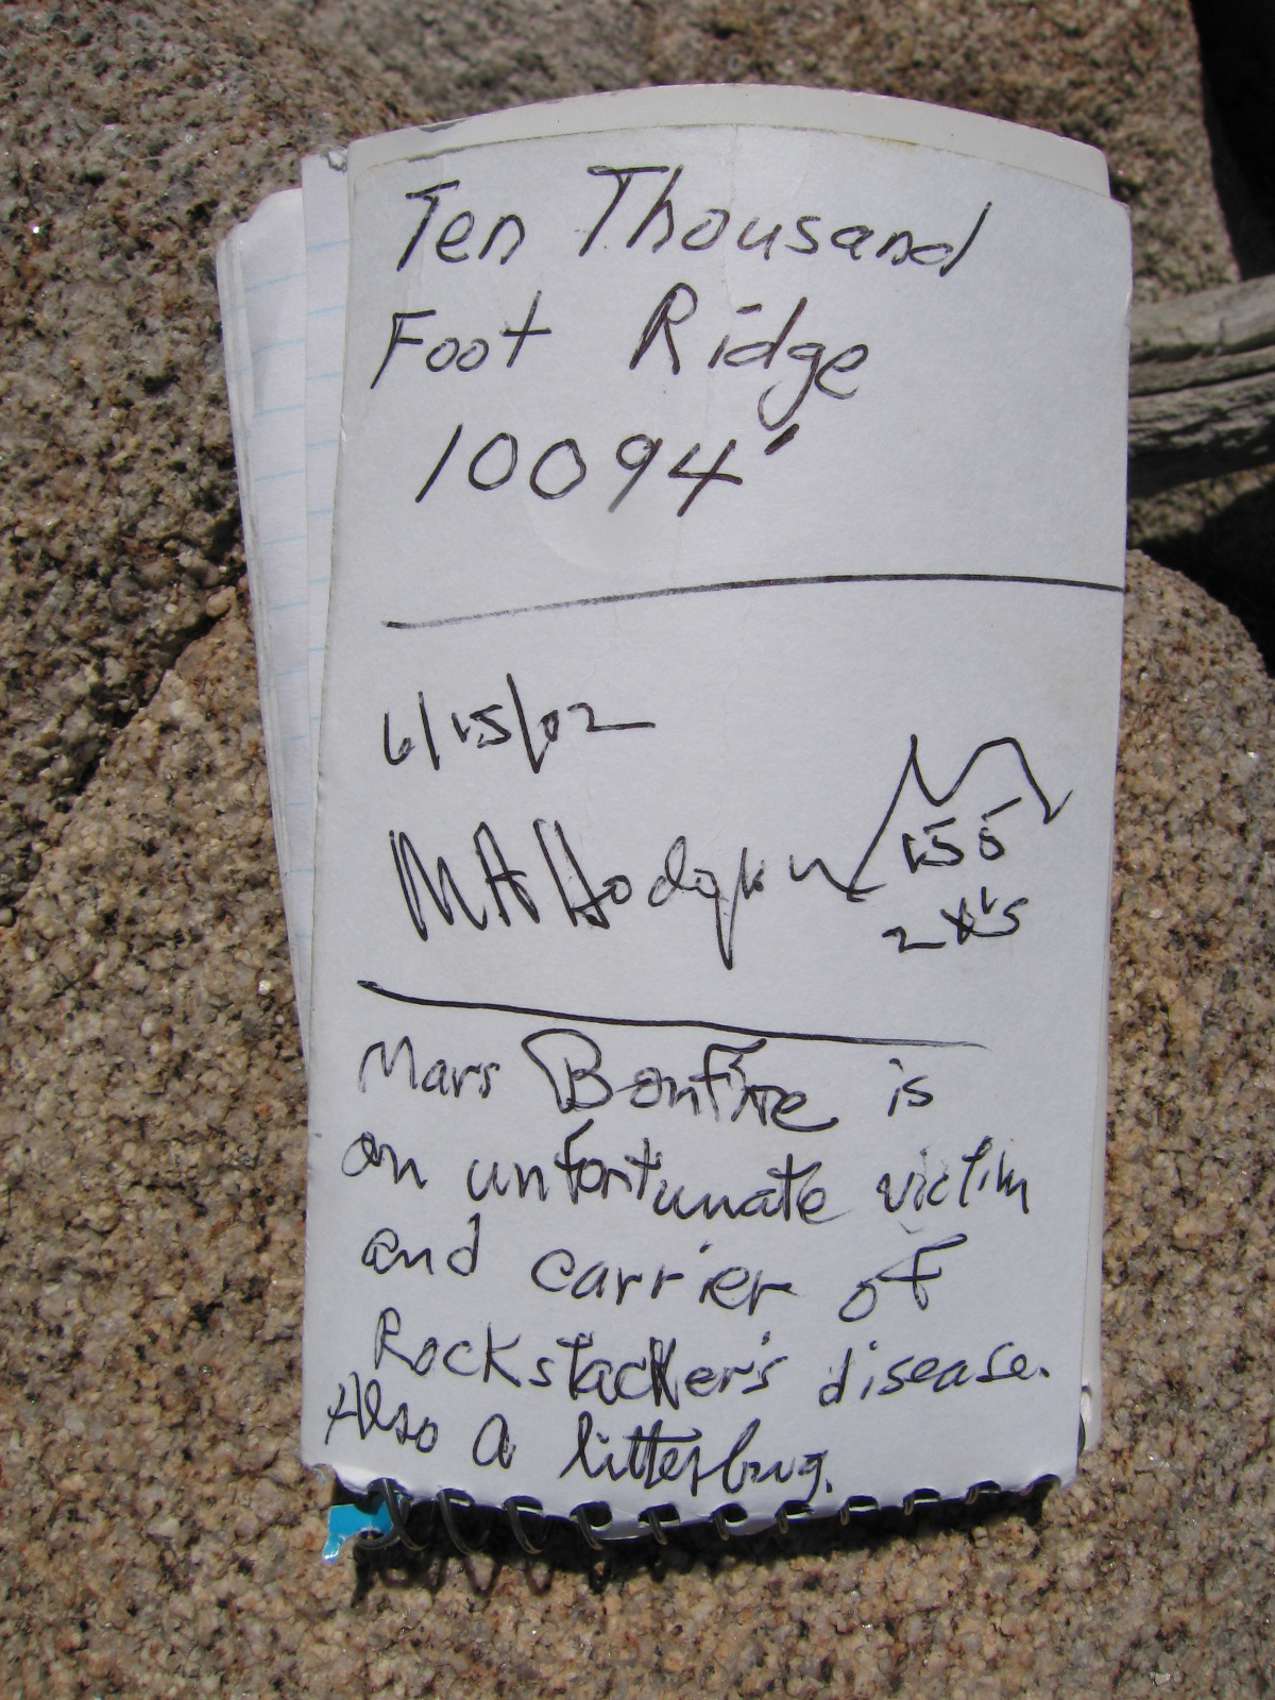 Ten Thousand
Foot Ridge
10094'
6/15/02
MA Hodgkin
155
2x15
Mars Bonfire is
an unfortunate victim
and carrier of
Rockstacker's disease.
Also a litterbug.